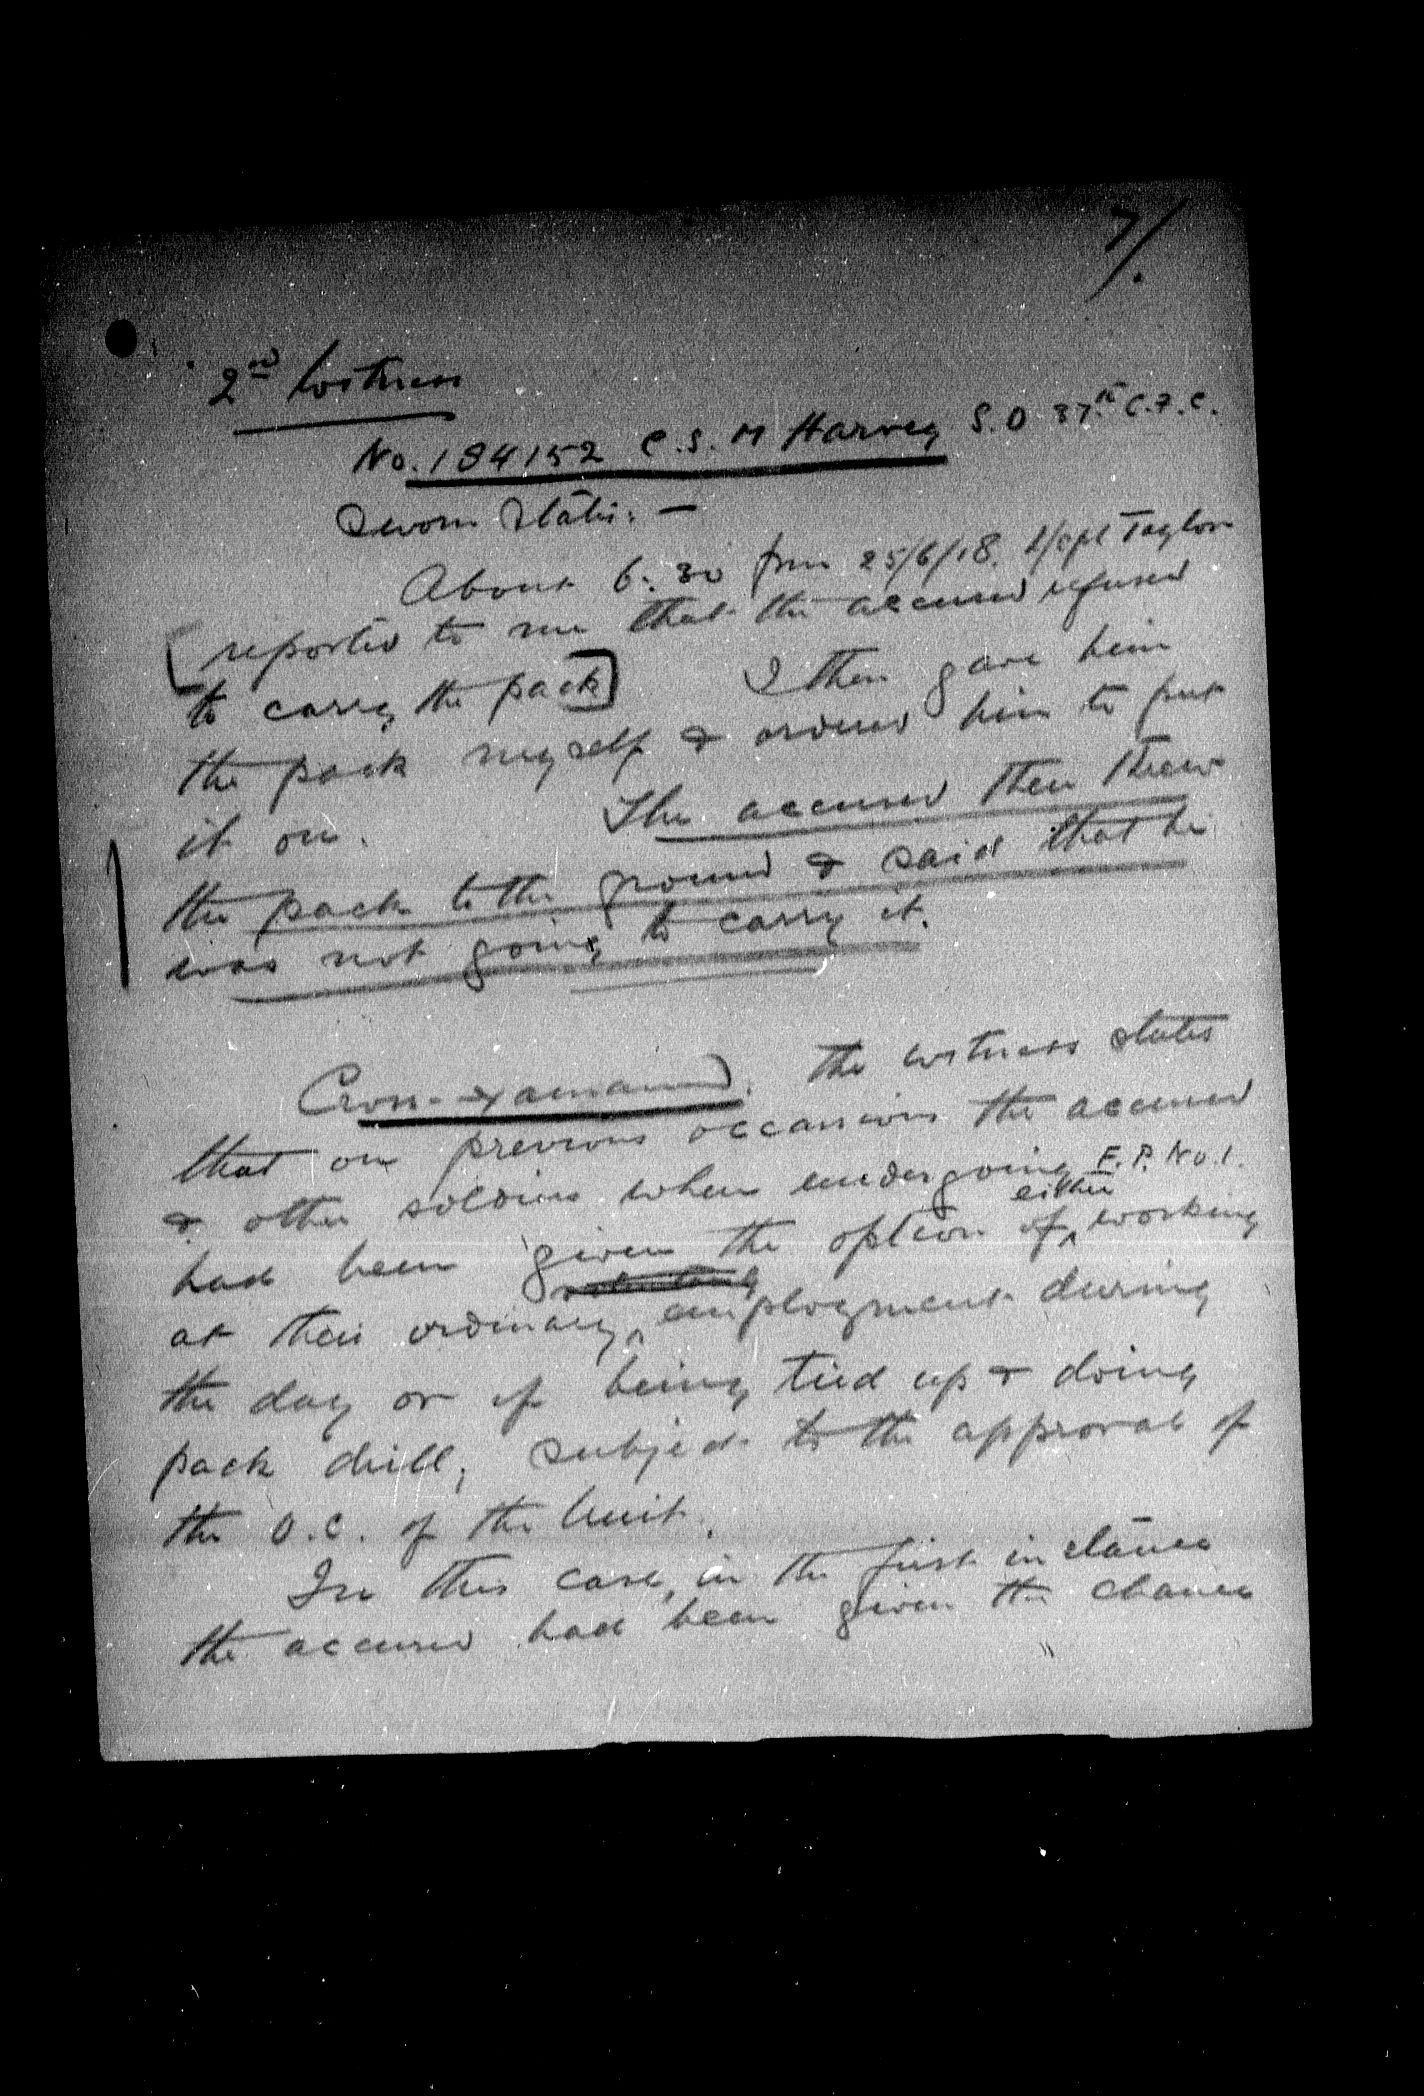 7/.
2nd Witness
No. 184152 C.S.M Harvey S.D 37th C.F.C.
Sworn States: —
About 6.30 pm 25/6/18. L/Cpl Taylor
[reported to me that the accused refused
to carry the pack] I then gave him
the pack myself & ordered him to put
it on. The accused then threw
the pack to the ground & said that he
was not going to carry it.
Cross-examined. The witness states
that on previous occasions the accused
& other soldiers when undergoing F.P. No.1.
had been given the option of either working
at their ordinary employment during
the day or of being tied up & doing
pack drill, subject to the approval of
the O.C. of the Unit.
In this case, in the first instance
the accused had been given the chance